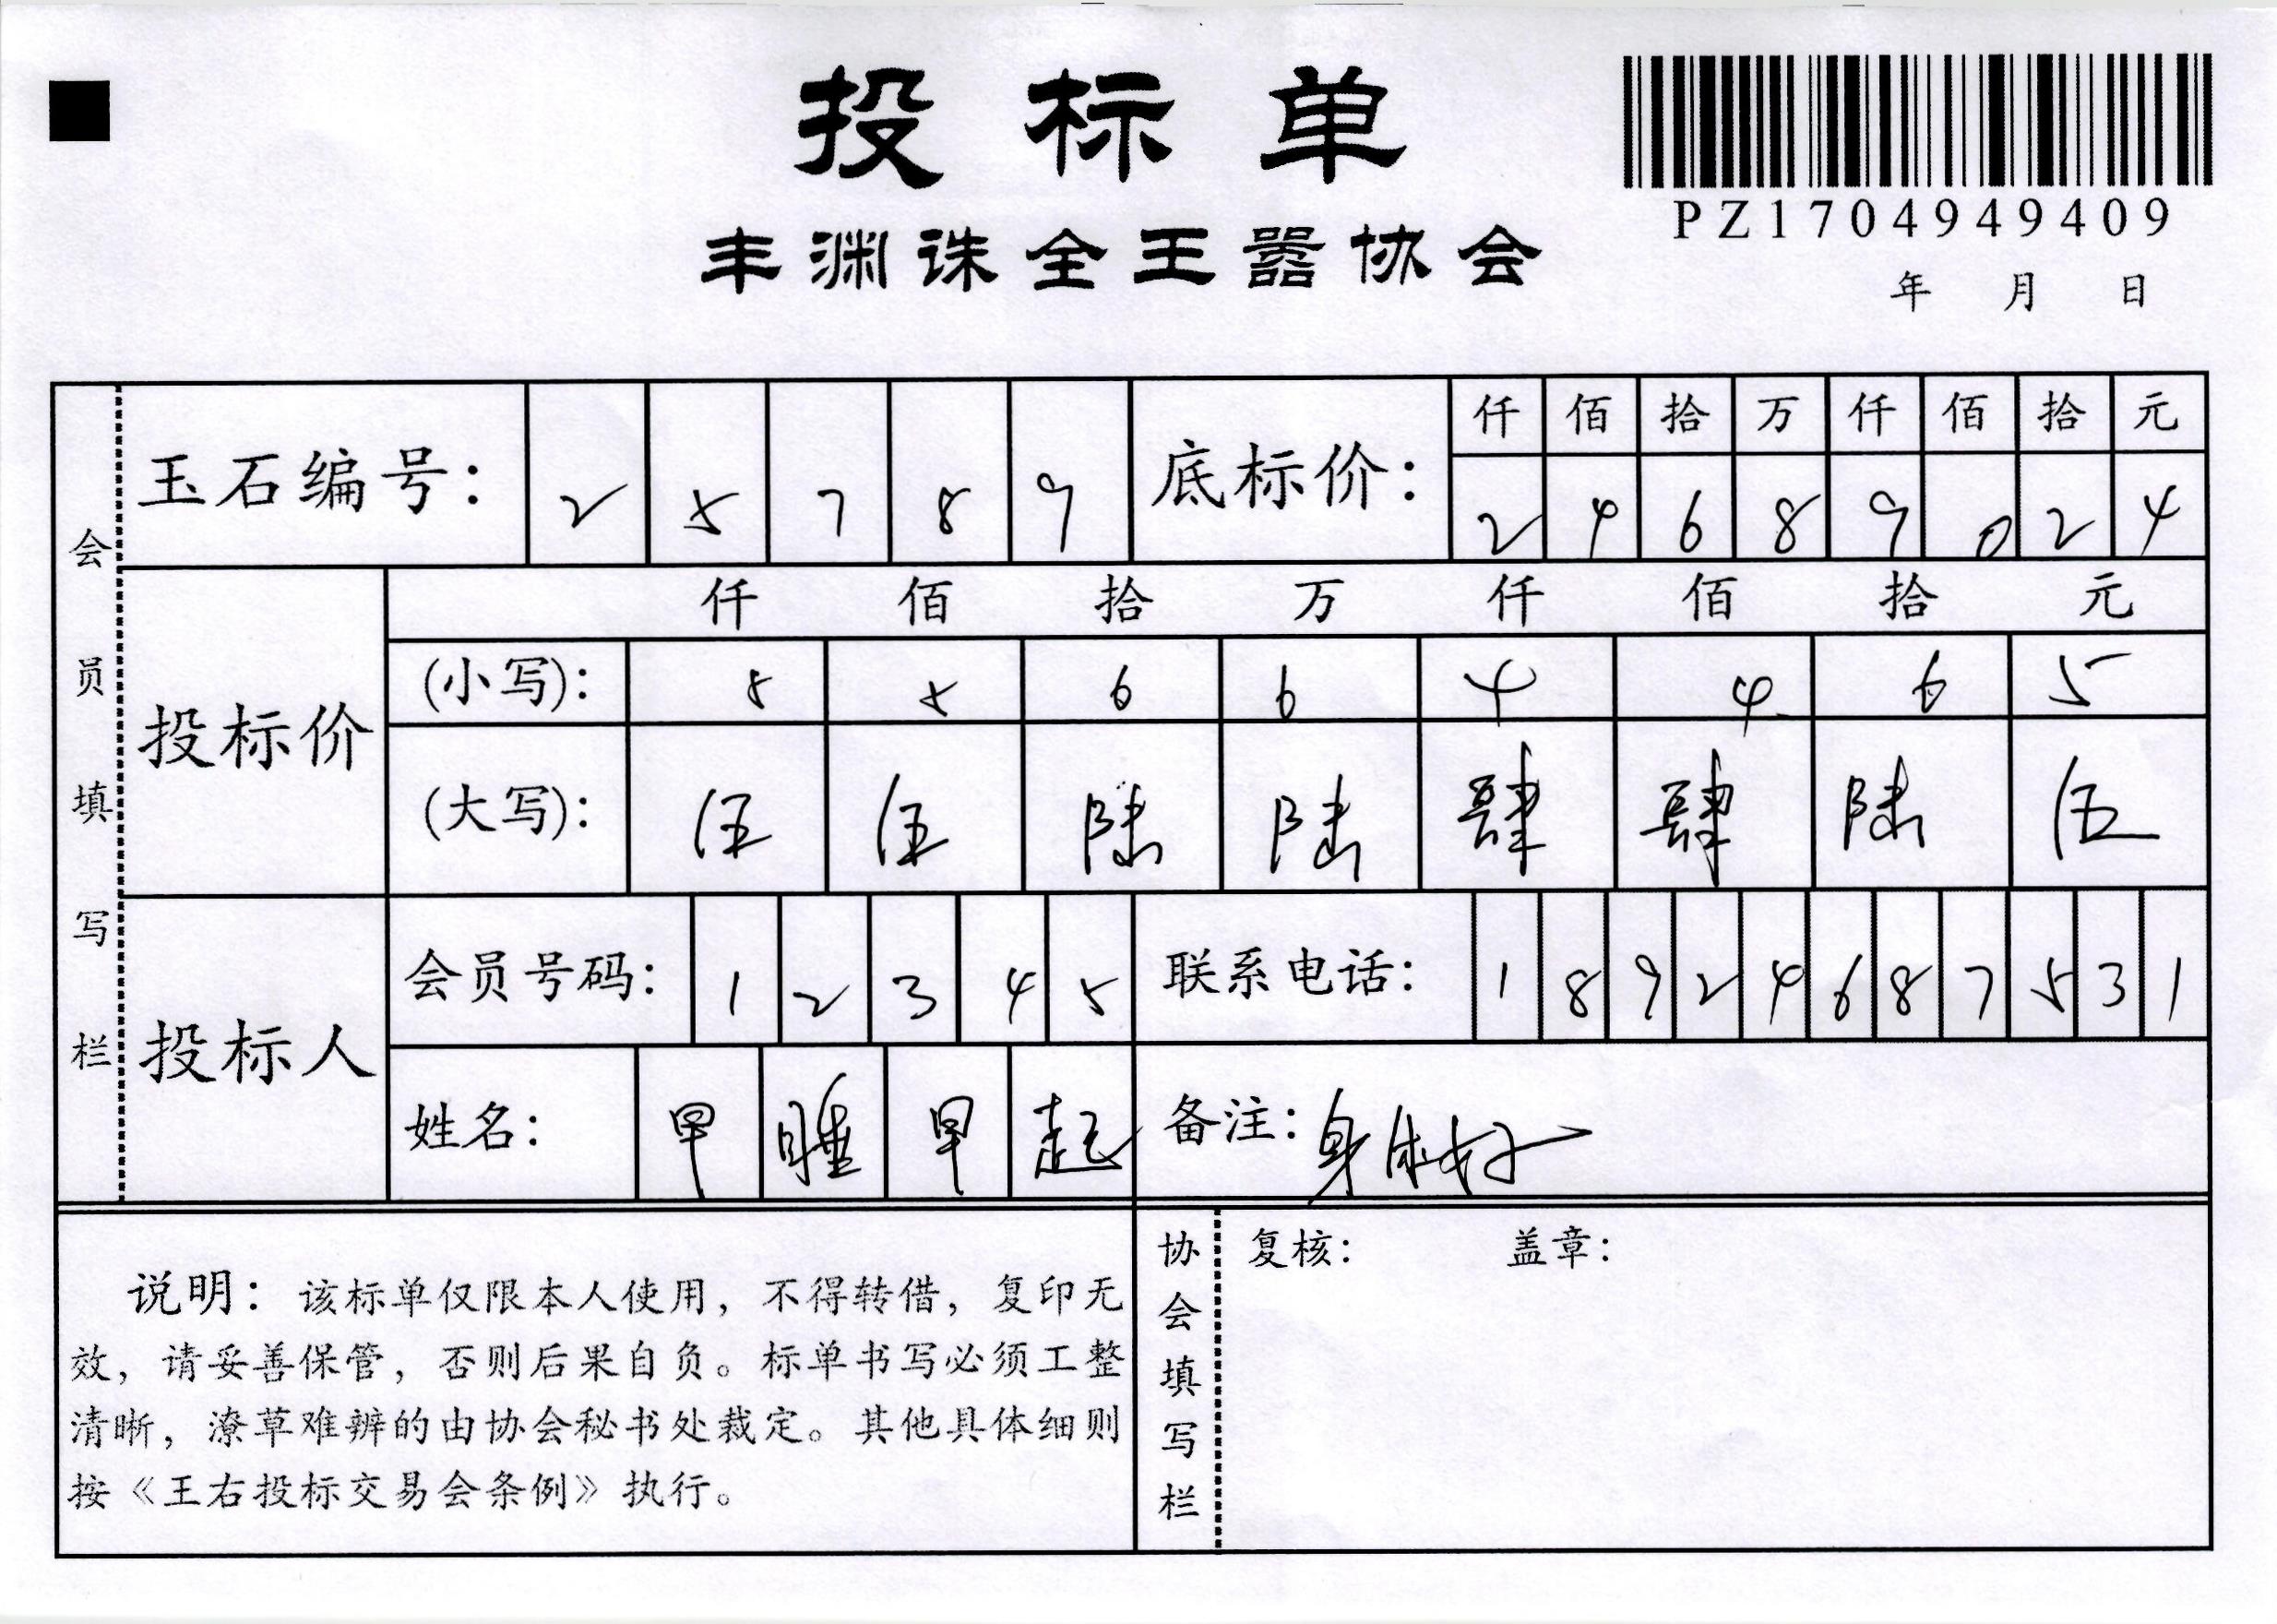 投标单
PZ1704949409
丰渊诛全王嚣协会
年 月 日
会员填写栏
玉石编号： 2 5 7 8 9
底标价：
仟 佰 拾 万 仟 佰 拾 元
2 4 6 8 9 0 2 4
投标价
仟 佰 拾 万 仟 佰 拾 元
(小写)： 5 5 6 6 4 4 6 5
(大写)： 伍 伍 陆 陆 肆 肆 陆 伍
投标人
会员号码： 1 2 3 4 5
联系电话： 1 8 9 2 4 6 8 7 5 3 1
姓名： 早 睡 早 起
备注：身体好
说明：该标单仅限本人使用，不得转借，复印无
效，请妥善保管，否则后果自负。标单书写必须工整
清晰，潦草难辨的由协会秘书处裁定。其他具体细则
按《王右投标交易会条例》执行。
协会填写栏
复核： 盖章：